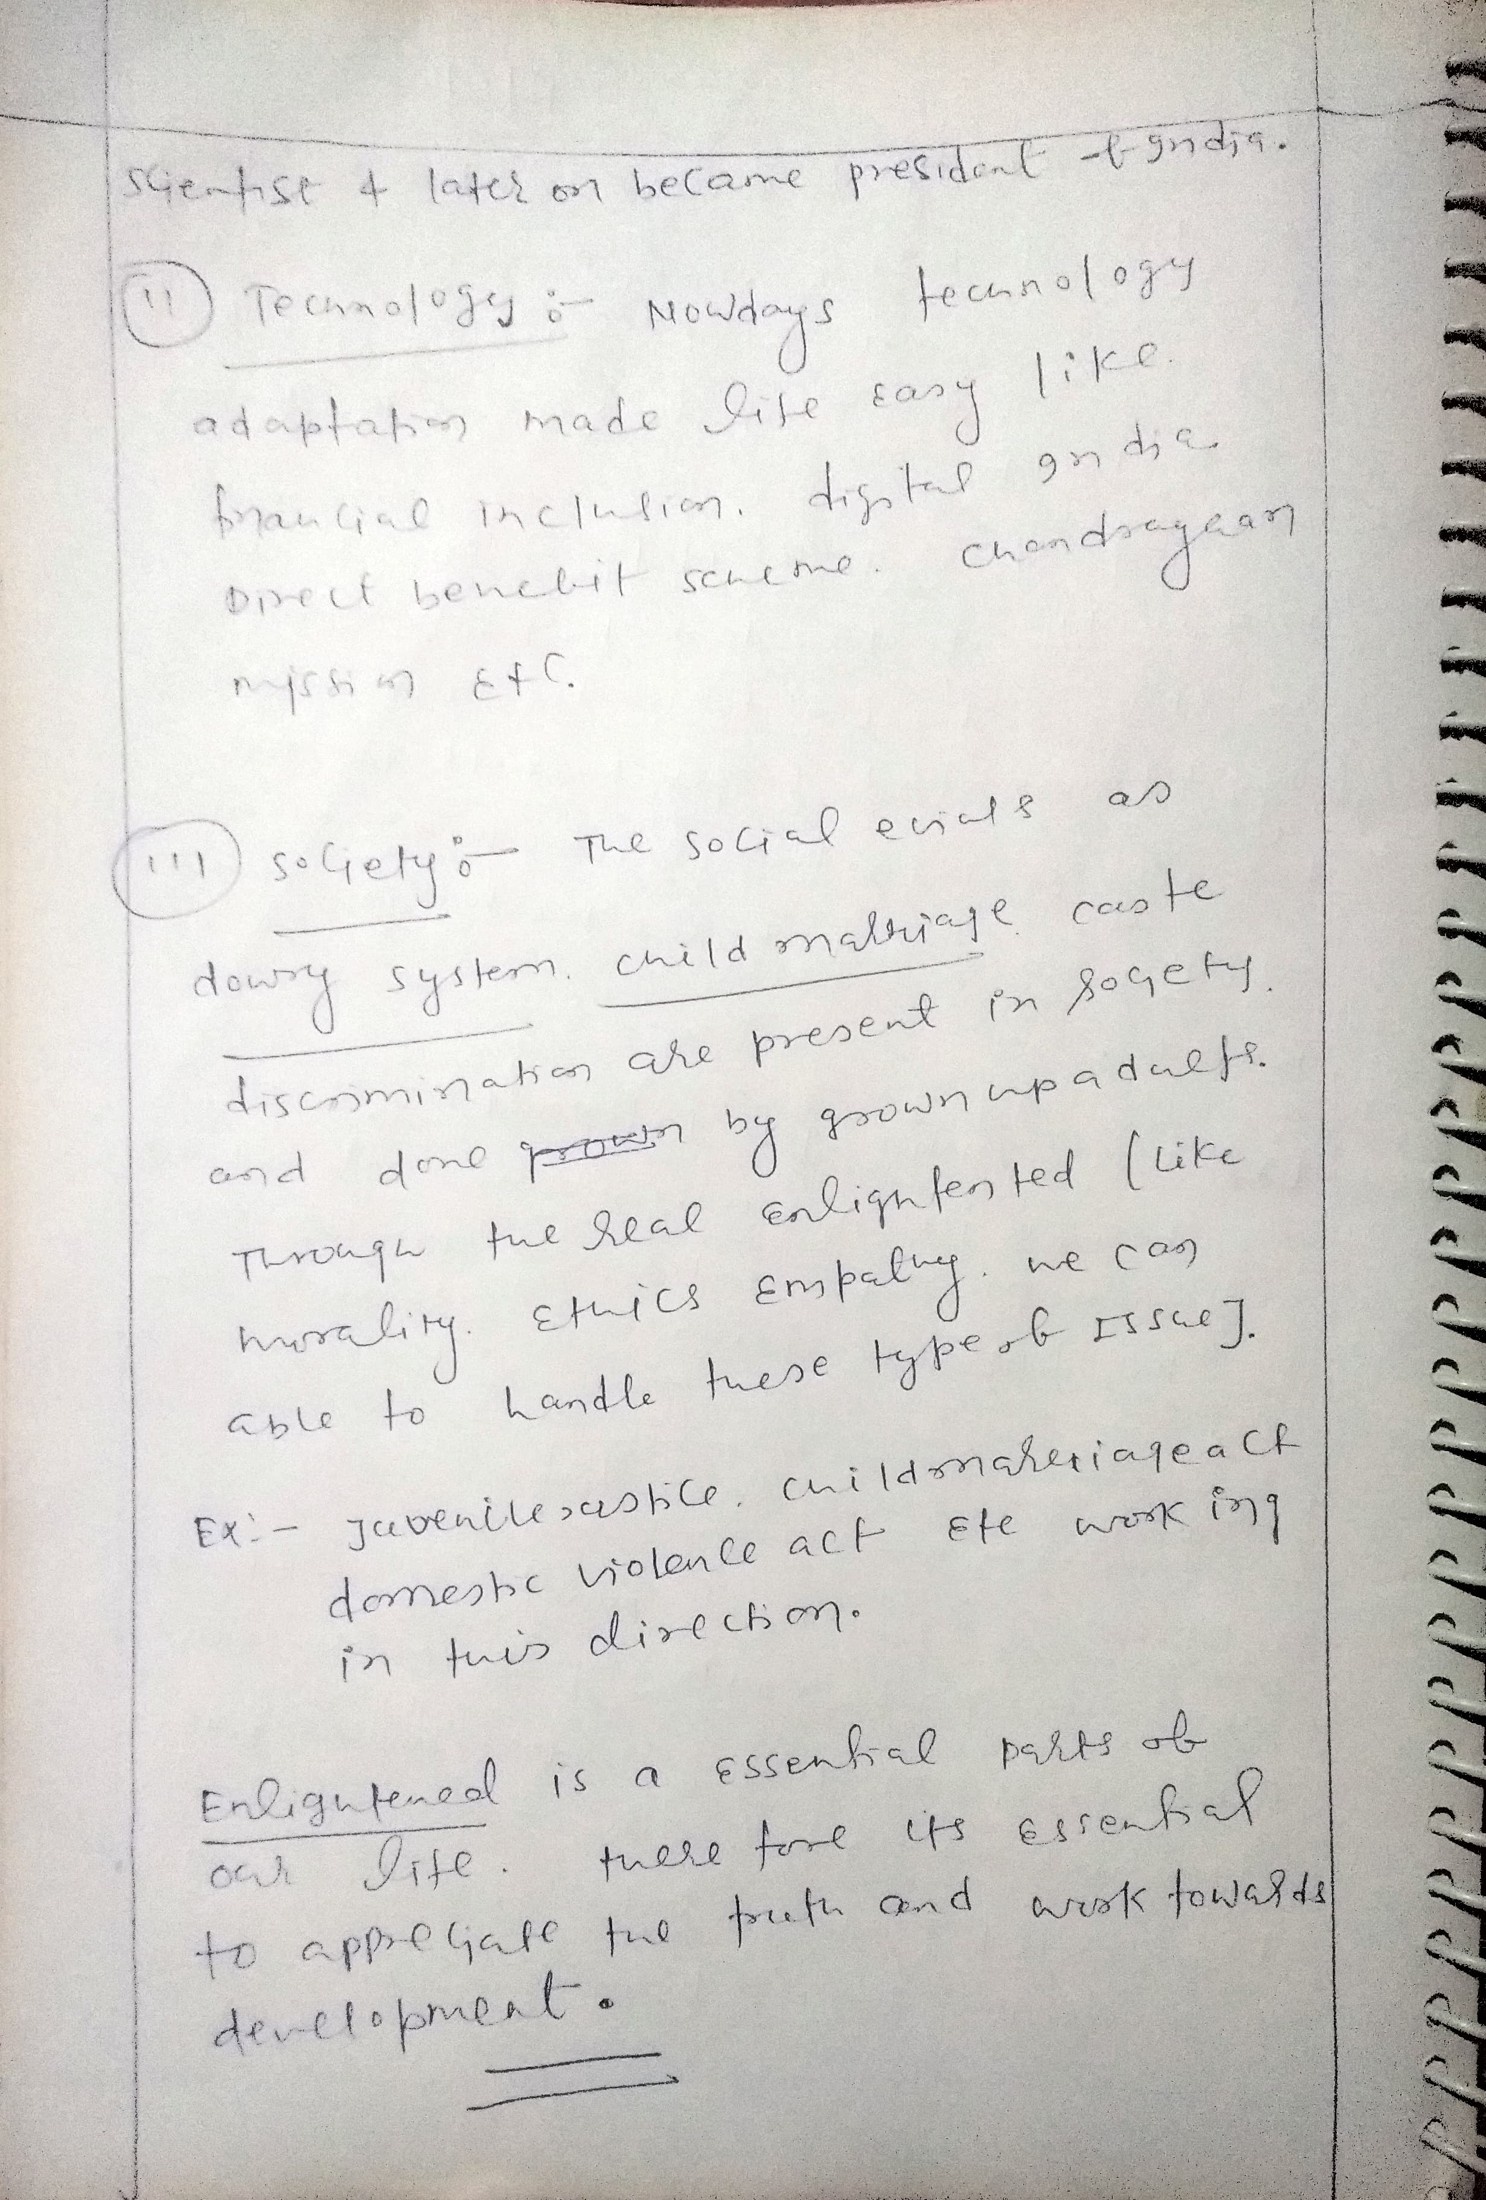 scientist & later on became president of India.
(ii) Technology :- Nowdays technology
adaptation made life easy like
financial inclusion, digital India
Direct benefit scheme. Chandrayaan
mission Etc.
(iii) Society :- The social evials as
dowry system, child marriage, caste
discrimination are present in society.
and done grown by grown up adults.
Through the real enlightented (Like
morality, Ethics Empathy, we can
able to handle these type of Issue].
Ex:- Juvenile justice, child marriage act
domestic violence act Etc working
in this direction.
Enlightened is a Essential parts of
our life. there fore its Essential
to appreciate the truth and work towards
development.